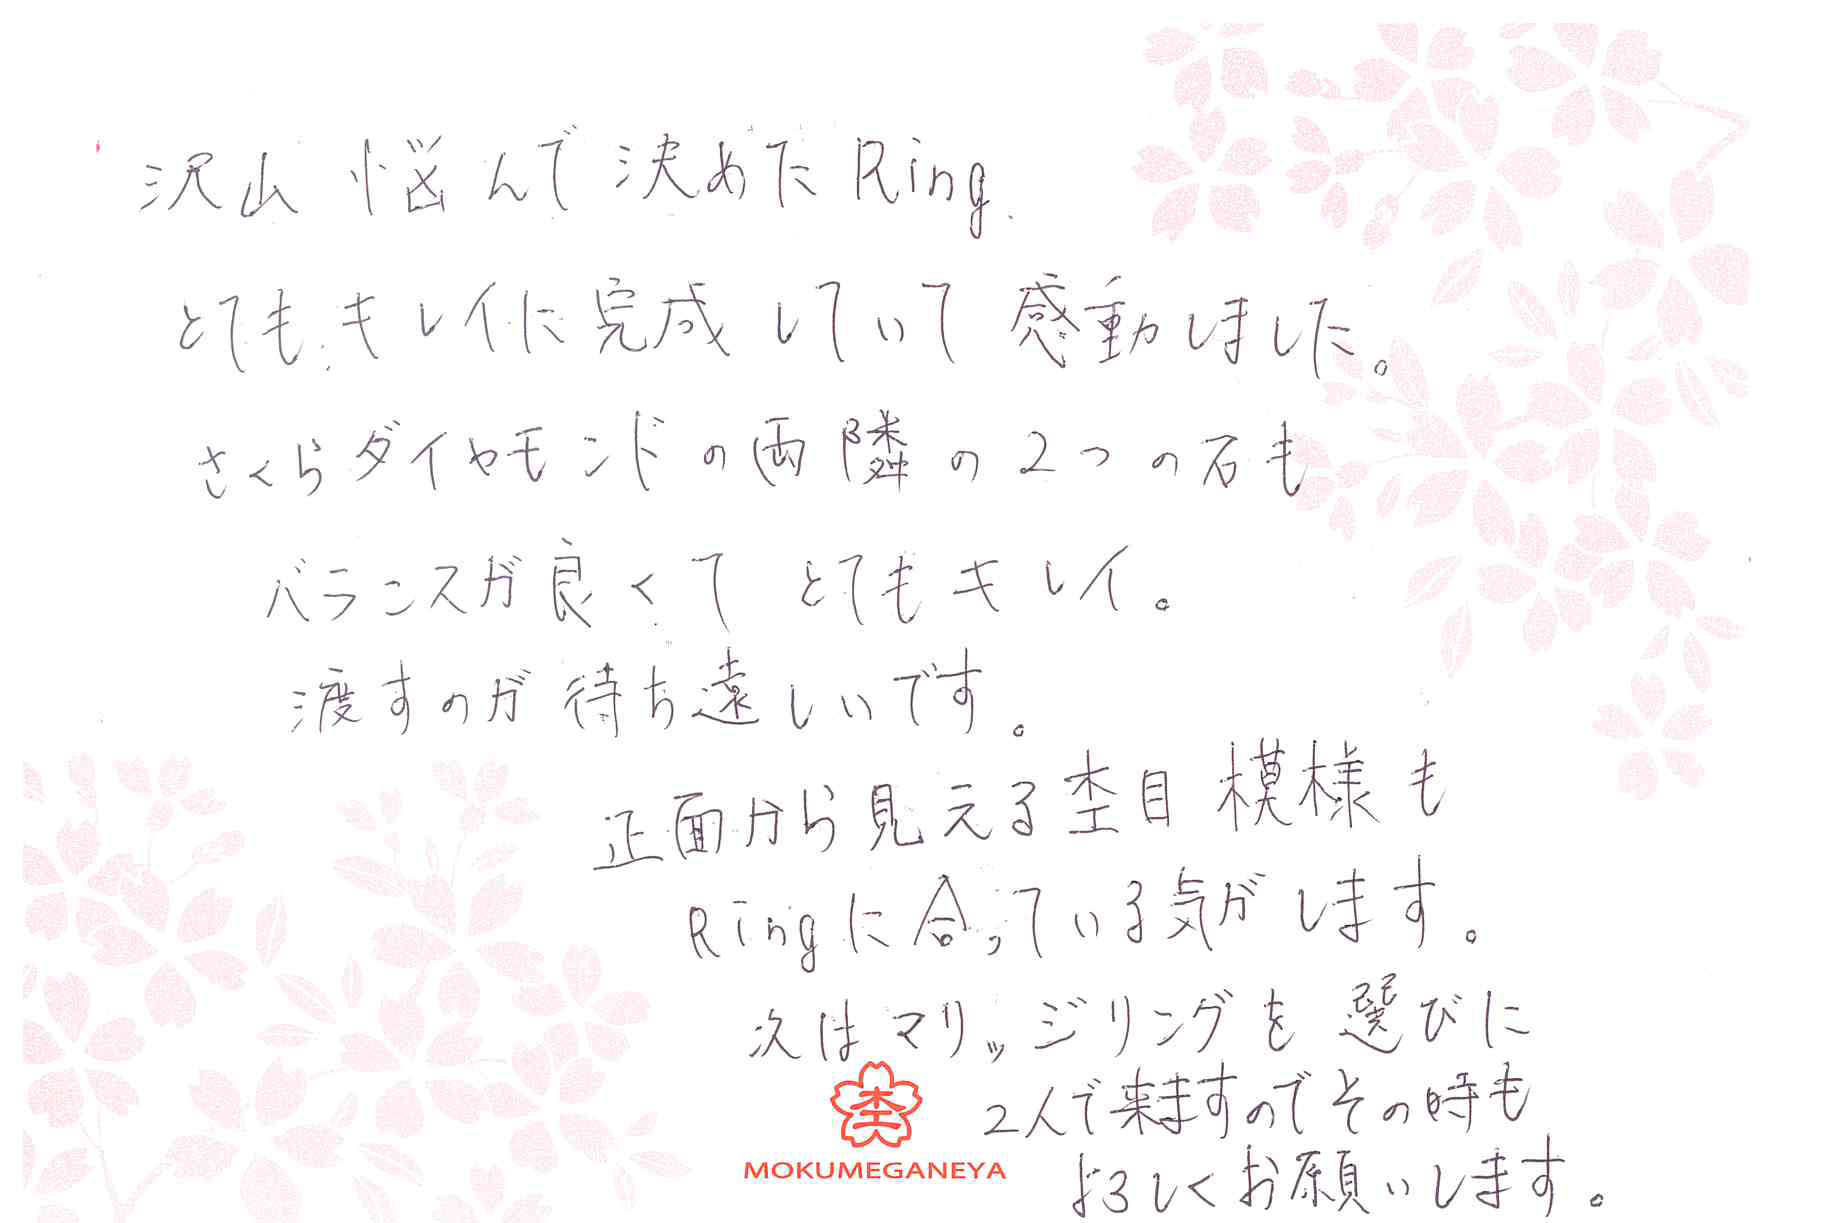 沢山 悩んで 決めた Ring.
とても キレイに完成 していて 感動しました。
さくらダイヤモンドの両隣の2つの石も
バランスが良くて とてもキレイ。
渡すのが待ち遠しいです。
正面から見える杢目 模様も
Ringに合っている気がします。
次はマリッジリングを選びに
2人で来ますのでその時も
よろしくお願いします。
杢
MOKUMEGANEYA